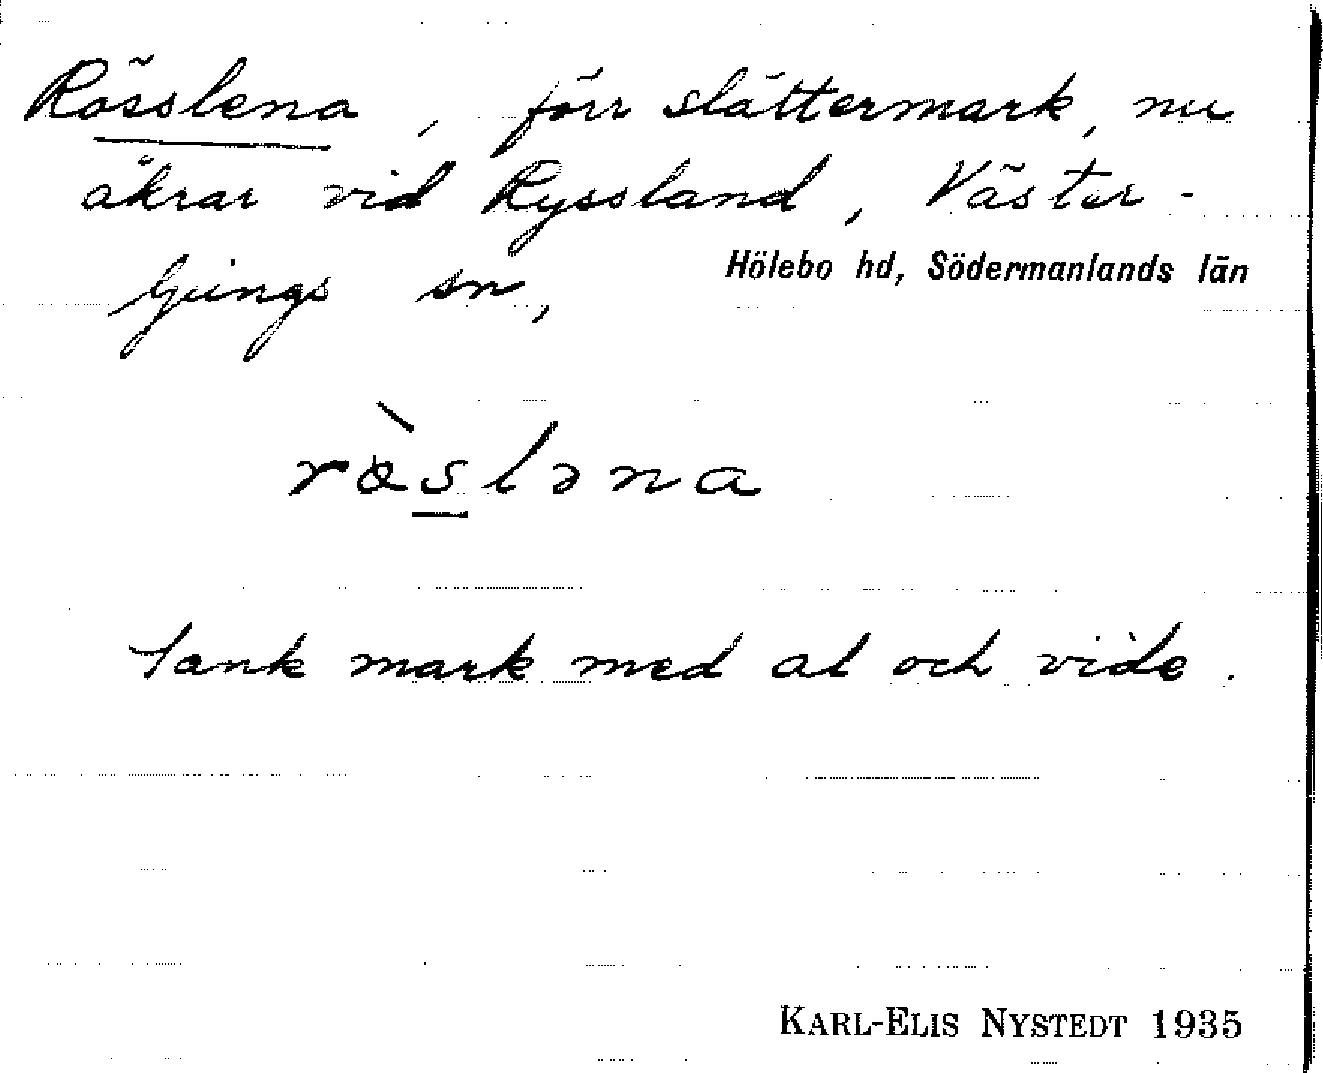 Rösslena, förr slåttermark, nu
åkrar vid Ryssland, Väster-
ljungs sn,
Hölebo hd, Södermanlands län
rø̀sləna
Sank mark med al och vide.
KARL-ELIS NYSTEDT 1935